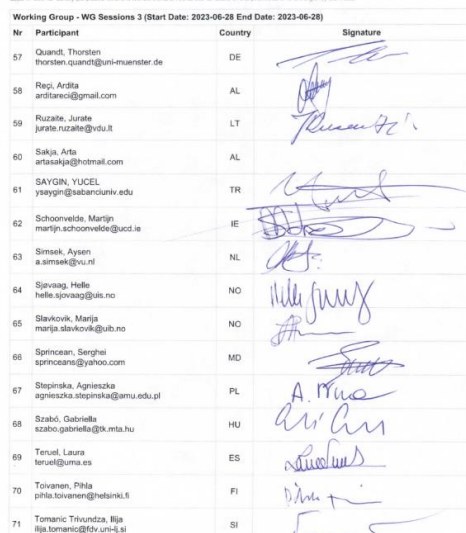 Working Group - WG Sessions 3 (Start Date: 2023-06-28 End Date: 2023-06-28)
Nr Participant Country Signature
57 Quandt, Thorsten DE
thorsten.quandt@uni-muenster.de
58 Reçi, Ardita AL
arditareci@gmail.com
59 Ruzaite, Jurate LT
jurate.ruzaite@vdu.lt
60 Sakja, Arta AL
artasakja@hotmail.com
61 SAYGIN, YUCEL TR
ysaygin@sabanciuniv.edu
62 Schoonvelde, Martijn IE
martijn.schoonvelde@ucd.ie
63 Simsek, Aysen NL
a.simsek@vu.nl
64 Sjøvaag, Helle NO
helle.sjovaag@uis.no
65 Slavkovik, Marija NO
marija.slavkovik@uib.no
66 Sprincean, Serghei MD
sprinceans@yahoo.com
67 Stepinska, Agnieszka PL
agnieszka.stepinska@amu.edu.pl
68 Szabó, Gabriella HU
szabo.gabriella@tk.mta.hu
69 Teruel, Laura ES
teruel@uma.es
70 Toivanen, Pihla FI
pihla.toivanen@helsinki.fi
71 Tomanic Trivundza, Ilija SI
ilija.tomanic@fdv.uni-lj.si